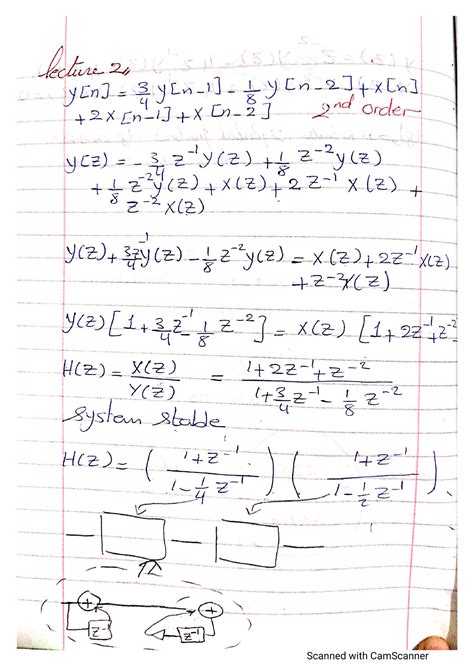 lecture 2,,
y[n] = 3/4 y[n-1] - 1/8 y[n-2] + x[n]
+ 2x[n-1] + x[n-2] 2nd order
y(z) = - 3/4 z^-1 y(z) + 1/8 z^-2 y(z)
+ 1/8 z^-2 y(z) + x(z) + 2 z^-1 x(z) +
z^-2 x(z)
y(z) + 3/4 z^-1 y(z) - 1/8 z^-2 y(z) = x(z) + 2z^-1 x(z)
+ z^-2 x(z)
y(z) [1 + 3/4 z^-1 - 1/8 z^-2] = x(z) [1 + 2z^-1 + z^-2
H(z) = X(z) / Y(z) = 1 + 2z^-1 + z^-2 / 1 + 3/4 z^-1 - 1/8 z^-2
system stable
H(z) = ( 1 + z^-1 / 1 - 1/4 z^-1 ) ( 1 + z^-1 / 1 - 1/2 z^-1 )
+ +
z^-1 z^-1
Scanned with CamScanner